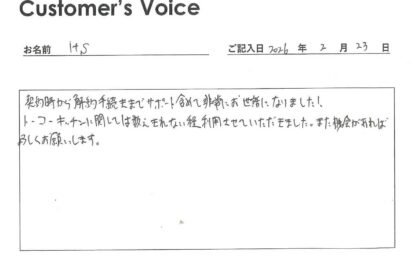 Customer's Voice
お名前 H.S ご記入日 2026 年 2 月 23 日
契約時から解約手続きまでサポート含めて非常にお世話になりました！
トーコーキッチンに関しては数えきれない程利用させていただきました。また機会があれば
よろしくお願いします。